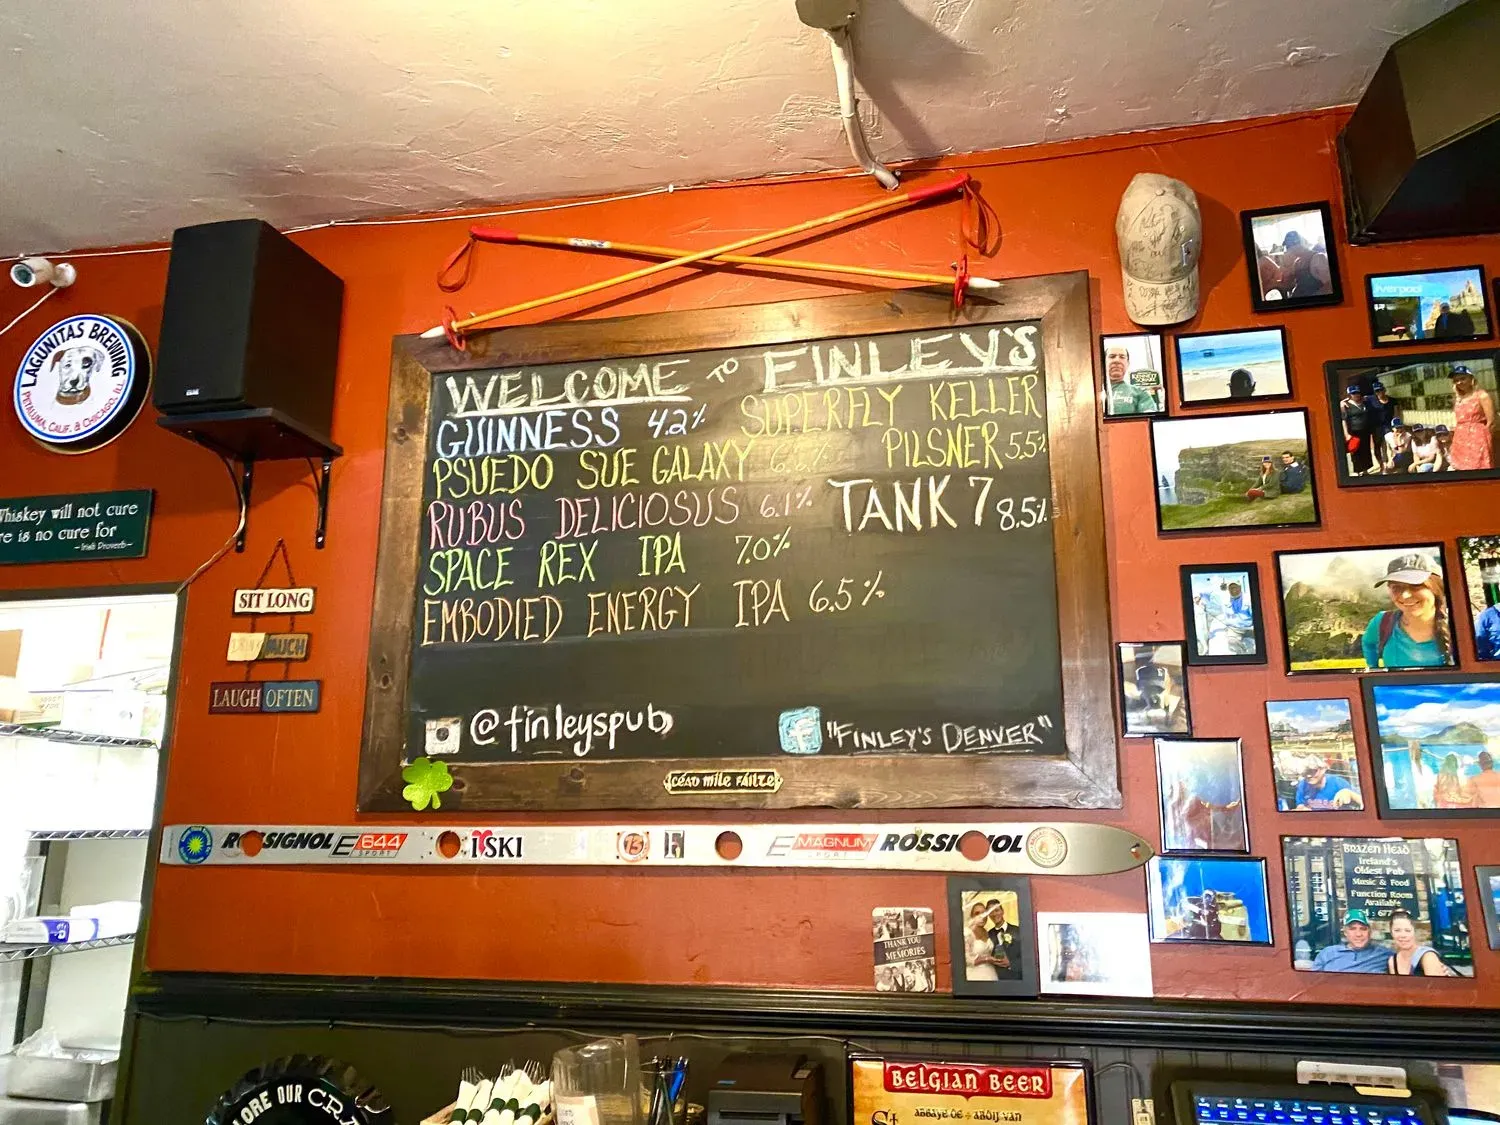 WELCOME TO FINLEY'S
GUINNESS 4.2%
PSUEDO SUE GALAXY
RUBUS DELICIOSUS 6.1%
SPACE REX IPA 7.0%
EMBODIED ENERGY IPA 6.5%
SUPERFLY KELLER
PILSNER 5.5%
TANK 7 8.5%
@finleyspub
"FINLEY'S DENVER"
CÉAD MÍLE FÁILTE
LAGUNITAS BREWING
PETALUMA, CALIF. & CHICAGO, ILL.
Whiskey will not cure
re is no cure for
~Irish Proverb~
SIT LONG
MUCH
LAUGH OFTEN
ROSSIGNOL E 644
SPORT
I SKI
13
E MAGNUM ROSSIGNOL
THANK YOU
MEMORIES
BRAZEN HEAD
IRELAND'S
OLDEST PUB
MUSIC & FOOD
FUNCTION ROOM
AVAILABLE
ORE OUR CRA
BELGIAN BEER
St
ABBAYE DE - ABDIJ VAN